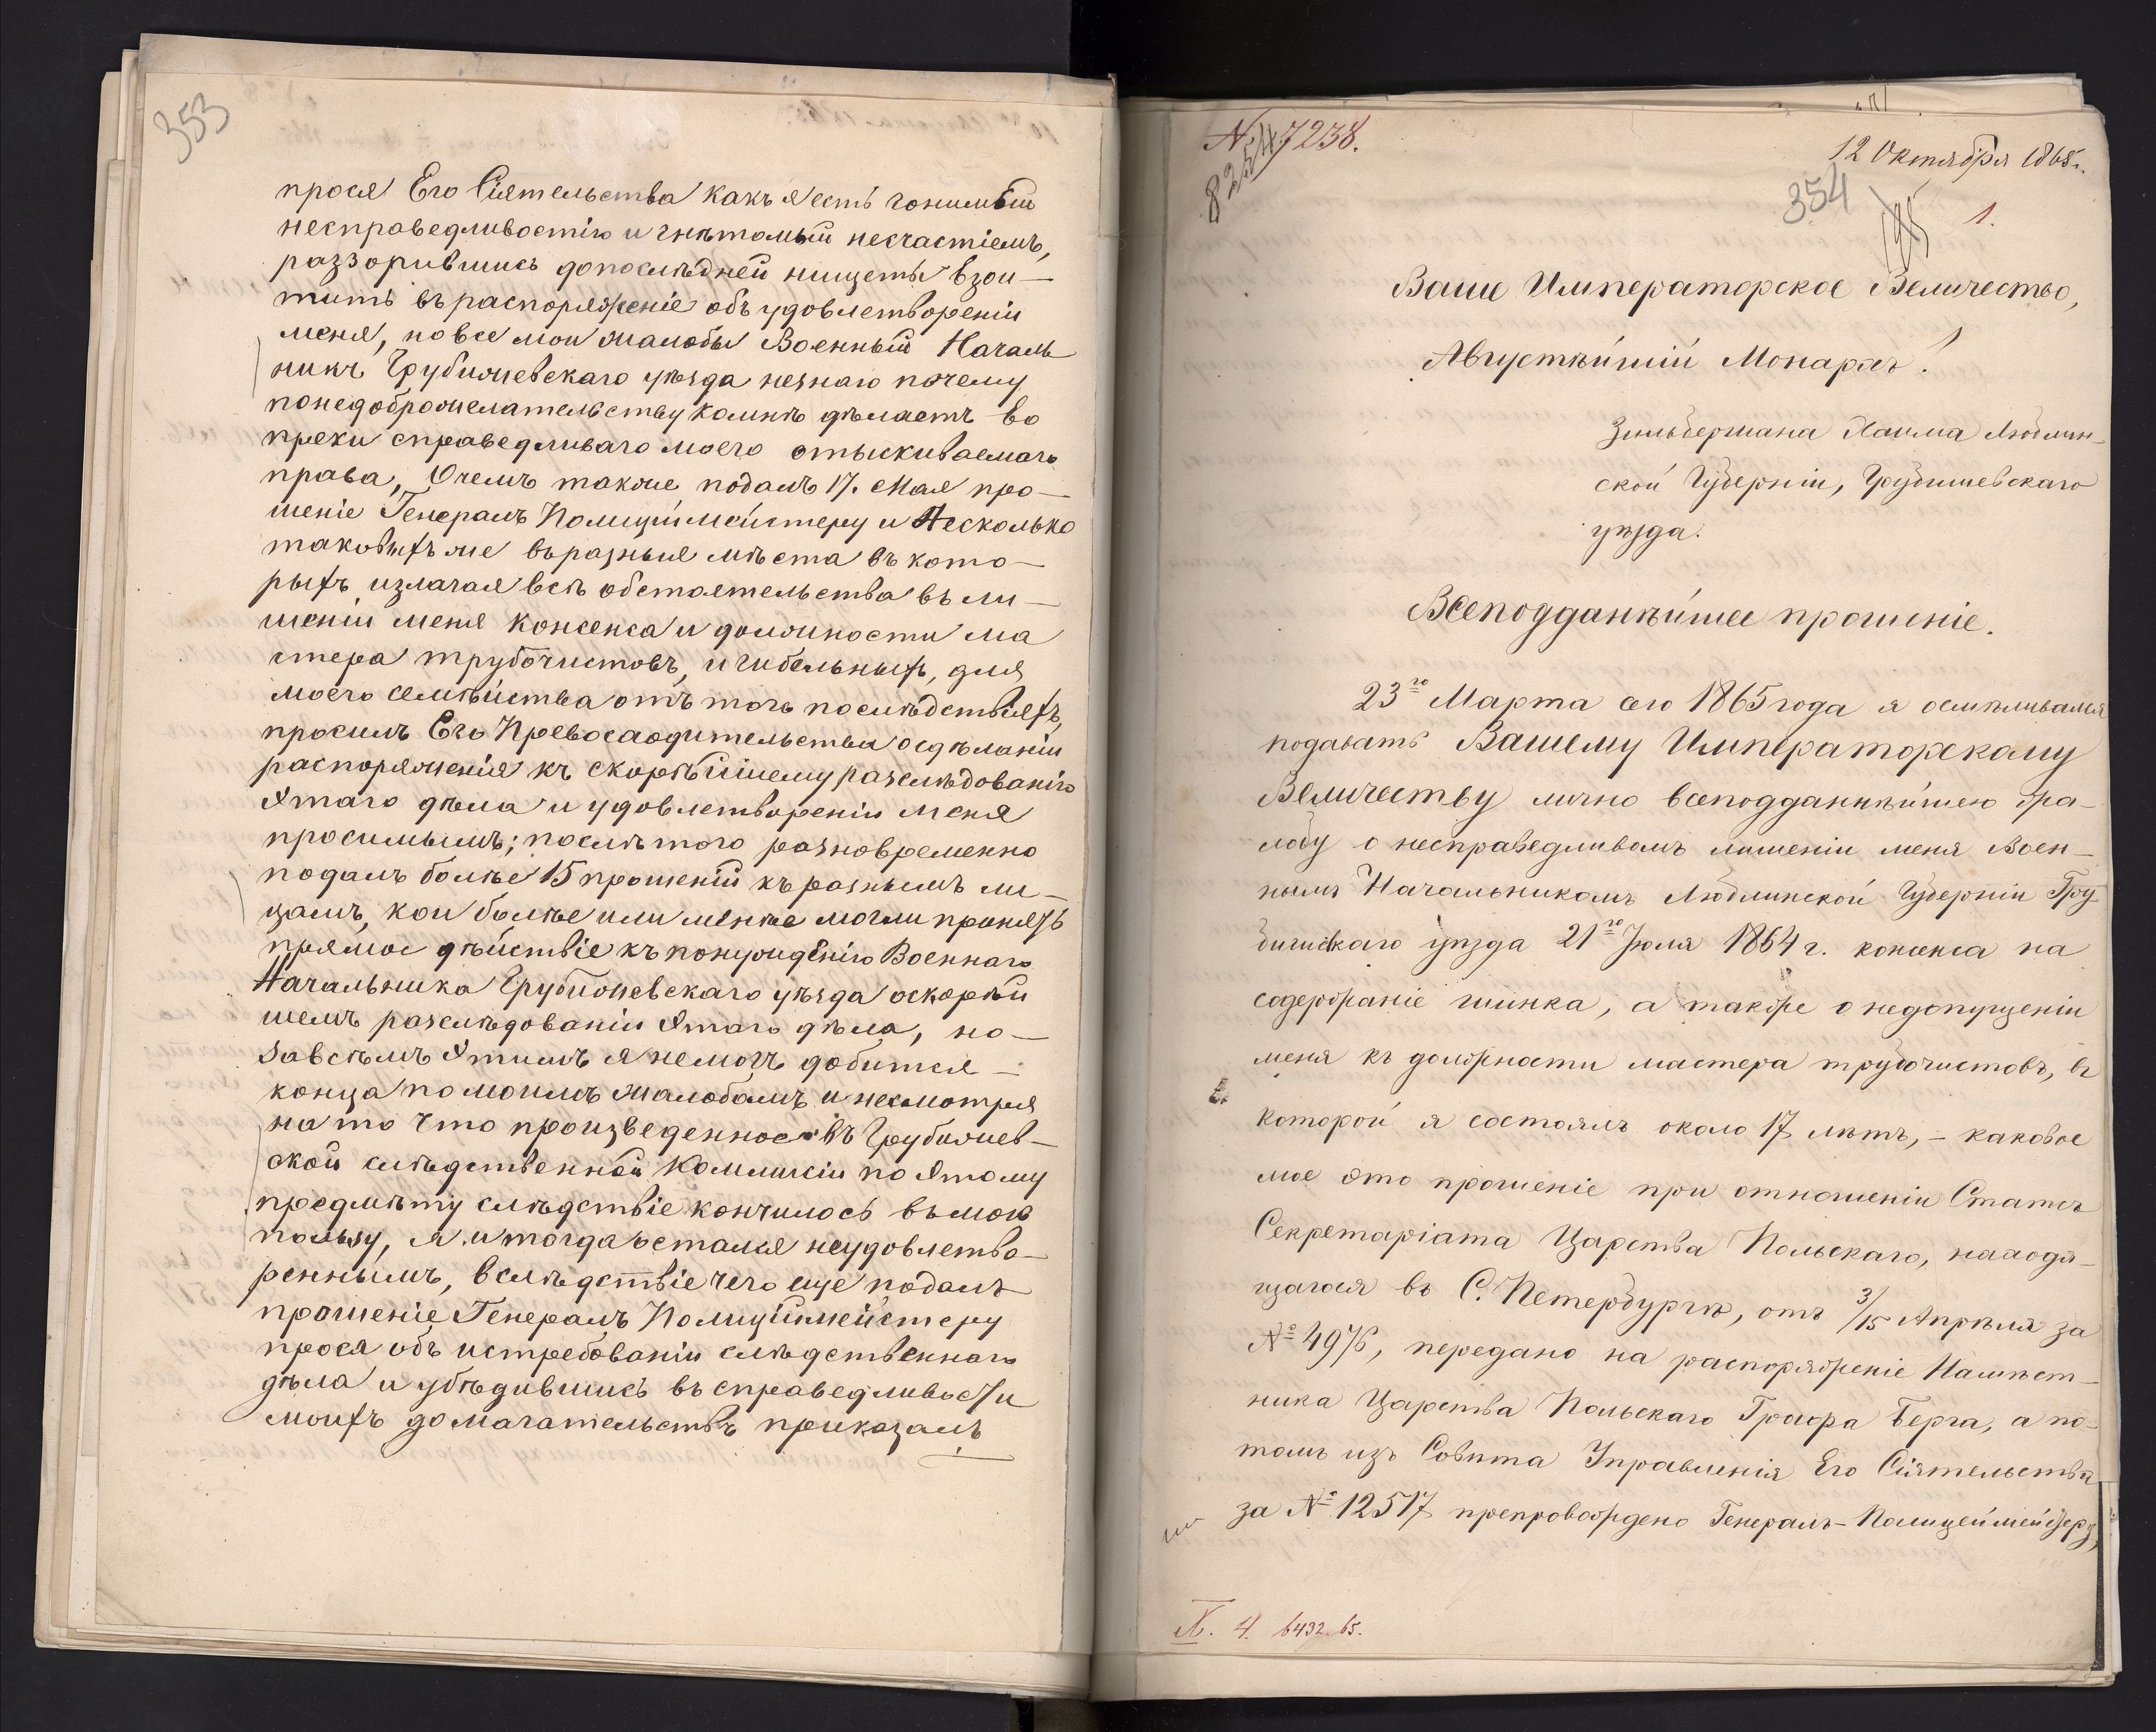 353
прося Его Сіятельства какъ я есть гонимый
несправедливостію и гнѣтомый несчастіемъ,
раззорившись допослѣдней нищеты взои-
тить въ распоряженіе объ удовлетвореніи
меня, но все мои жалобы Военный Началь
никъ Грубишевскаго уѣзда незнаю почему
понедоброжелательству комнѣ дѣлаетъ во
преки справедливаго моего отыскиваемаго
права, Очемъ также подалъ 17. Мая про-
шеніе Генералъ Полицiймейстеру и Несколько
таковыхъ же въ разныя мѣста въ кото-
рыхъ излагая всѣ обстоятельства въ ли-
шеніи меня консенса и должности ма
стера трубочистовъ, и гибельныхъ, для
моего семѣйства отъ того послѣдствіяхъ,
просилъ Его Превосходительства осдѣланіи
распоряженія къ скорѣйшему разслѣдованію
Этаго дѣла и удовлетвореніи меня
просимымъ; послѣ того разновременно
подалъ болѣе 15 прошеній къ разнымъ ли-
цамъ, кои болѣе или менѣе могли принять
прямое дѣйствіе къ понужденію Военнаго
Начальника Грубишевскаго уѣзда оскорѣй
шемъ разслѣдованіи Этаго дѣла, но-
завсѣмъ Этимъ я немогъ добится-
конца по моимъ жалобамъ и несмотря
на то что произведенное въ Грубишев-
ской слѣдственной Коммисіи по Этому
предмѣту слѣдствіе кончилось въ мою
пользу, я и тогда остался неудовлетво-
реннымъ, вслѣдствіе чего еще подалъ
прошеніе Генералъ Полиціймейстеру
прося объ истребованіи слѣдственнаго
дѣла и убѣдившись въ справедливости
моихъ домагательствъ приказалъ
№ 7238.
8254
12 Октября 1865 г.
354
195
1.
Ваше Императорское Величество,
Августѣйшій Монархъ!
Зильбермана Хаима Люблин-
ской Губерніи, Грубишевскаго
уѣзда.
Всеподданѣйшее прошеніе.
23го Марта сего 1865 года я осмѣливался
подавать Вашему Императорскому
Величеству лично всеподданнѣйшею жа-
лобу о несправедливомъ лишеніи меня Воен-
нымъ Начальникомъ Люблинской Губерніи Гру-
бишевскаго уѣзда 21го Іюля 1864 г. консенса на
содержаніе шинка, а также о недопущеніи
меня къ должности мастера трубочистовъ, въ
которой я состоялъ около 17 лѣтъ, - каковое
мое это прошеніе при отношеніи Статсъ
Секретаріата Царства Польскаго, находя-
щагося въ С. Петербургѣ, отъ 3/15 Апрѣля за
№ 4976, передано на распоряженіе Намѣст-
ника Царства Польскаго Графа Берга, а по-
томъ изъ Совѣта Управленія Его Сіятельства
за № 12517 препровождено Генералъ-Полицеймейстеру,
X. 4. 6432. 65.